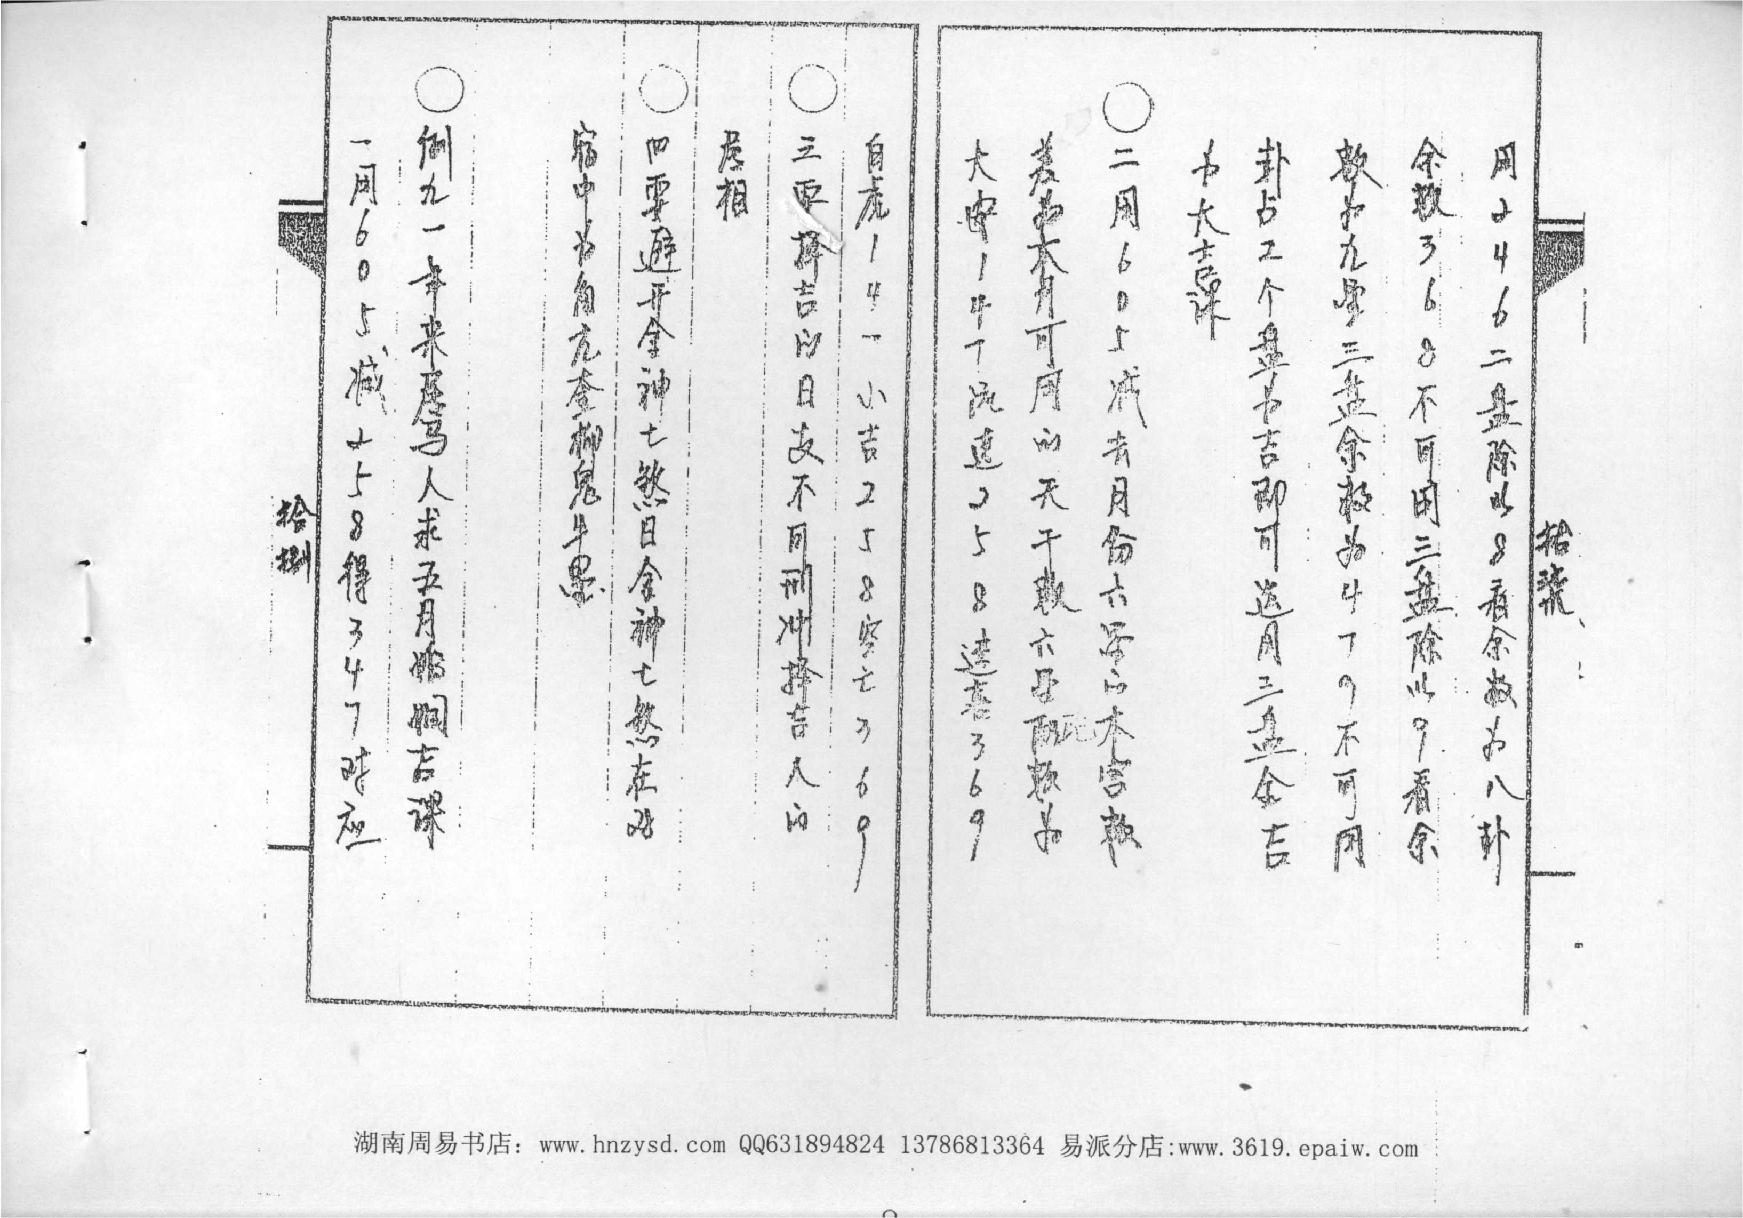 用2462盘除以8看余数为八卦
余数368不可用三盘除以9看余
数为九星三盘余数为479不可用
卦占2个盘为吉即可选月三盘全吉
为大吉课
二用605减去月份六&的本宫数
差为本月可用的天干数六&配数为
大安147流连258速喜369
白虎14一小吉258空亡369
三要择吉的日支不可刑冲择吉人的
属相
四要避开金神七煞日金神七煞在
宿中为角亢奎柳鬼牛
例九一年来属马人求五月婚姻吉课
一用605减258得347对应
拾捌
湖南周易书店：www.hnzysd.com QQ631894824 13786813364 易派分店:www.3619.epaiw.com